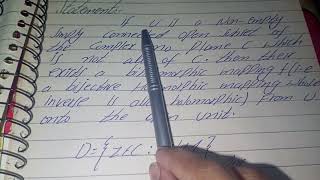 Statement:
If U is a Non-empty
Simply connected open subset of
the Complex no Plane C which
is not all of C. then there
exists a biholomorphic mapping f(i.e
a bijective holomorphic mapping whose
inverse is also holomorphic) from U
onto the unit.
D={z∈C: